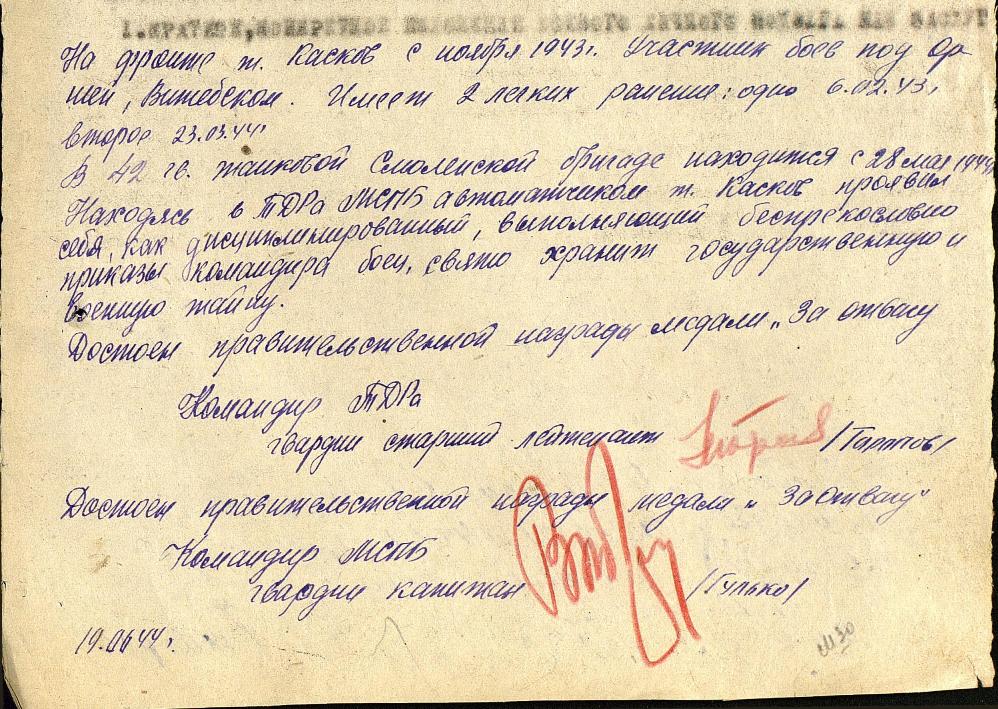 1. КРАТКОЕ, КОНКРЕТНОЕ ИЗЛОЖЕНИЕ БОЕВОГО ЛИЧНОГО ПОДВИГА ИЛИ ЗАСЛУГ
На фронте т. Касков с ноября 1943г. Участник боев под Ор-
шей, Витебском. Имеет 2 легких ранения: одно 6.02.43г
второе 23.03.44г.
В 42 гв. танковой Смоленской бригаде находится с 28 мая 1944г
Находясь в ТДРа МСПБ автоматчиком т. Касков проявил
себя, как дисциплинированный, выполняющий беспрекословно
приказы командира боец, свято хранит государственную и
военную тайну.
Достоен правительственной награды медали „За отвагу
Командир ТДРа
гвардии старший лейтенант /Тарапов/
Достоен правительственной награды медали „За Отвагу"
Командир МСПБ
гвардии капитан /Гулько/
19.06.44г.